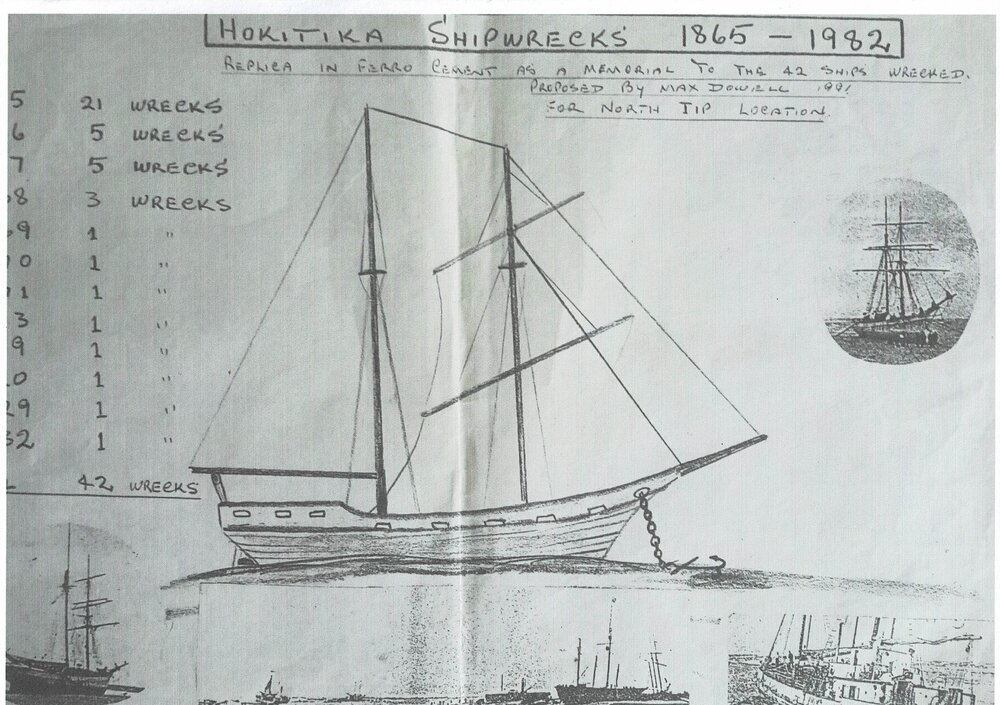 HOKITIKA SHIPWRECKS 1865 - 1982
REPLICA IN FERRO CEMENT AS A MEMORIAL TO THE 42 SHIPS WRECKED.
PROPOSED BY MAX DOWELL 1991
FOR NORTH TIP LOCATION.
5 21 WRECKS
6 5 WRECKS
7 5 WRECKS
68 3 WRECKS
69 1 "
0 1 "
1 1 "
3 1 "
9 1 "
0 1 "
29 1 "
32 1 "
42 WRECKS